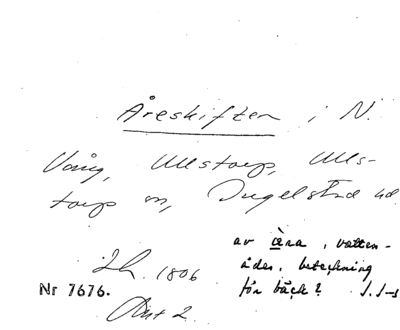 Åreskiften i N.
Vång, Ullstorp, Ulls-
torp sn, Ingelstad hd.
Lh. 1806
Akt 2.
Nr 7676.
av èra, vatten-
åder, beteckning
för bäck? J. J-s